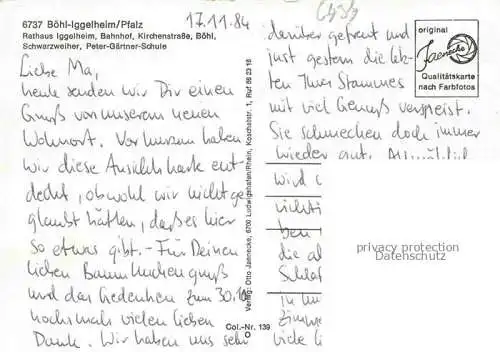 6737 Böhl-Iggelheim/Pfalz
Rathaus Iggelheim, Bahnhof, Kirchenstraße, Böhl,
Schwarzweiher, Peter-Gärtner-Schule
17.11.84
Liebe Ma,
heute senden wir Dir einen
Gruß von unserem neuen
Wohnort. Vor kurzem haben
wir diese Ansichtskarte ent-
deckt, obwohl wir nicht ge-
glaubt hätten, daß es hier
so etwas gibt. – Für Deinen
lieben Baumkuchengruß
und das Gedenken zum 30.10.
nochmals vielen lieben
Dank. Wir haben uns sehr
Col.-Nr. 139
Verlag: Otto Jaenecke, 6700 Ludwigshafen/Rhein, Koschatstr. 1, Ruf 66 23 18
darüber gefreut und
just gestern die letz-
ten Ihres Stammes
mit viel Genuß verspeist.
Sie schmecken doch immer
wieder gut.
wird
ben
die
Schlaf
in
Zimme
viele
original
Jaenecke
Qualitätskarte
nach Farbfotos
privacy protection
Datenschutz